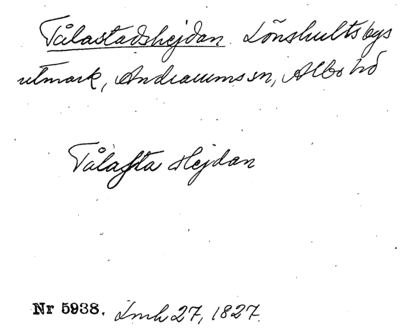 Tålastadshejdan Lönshults bys
utmark, Andrarums sn, Albo hd
Tålasta Hejdan
Nr 5938. Lmh 27, 1827.